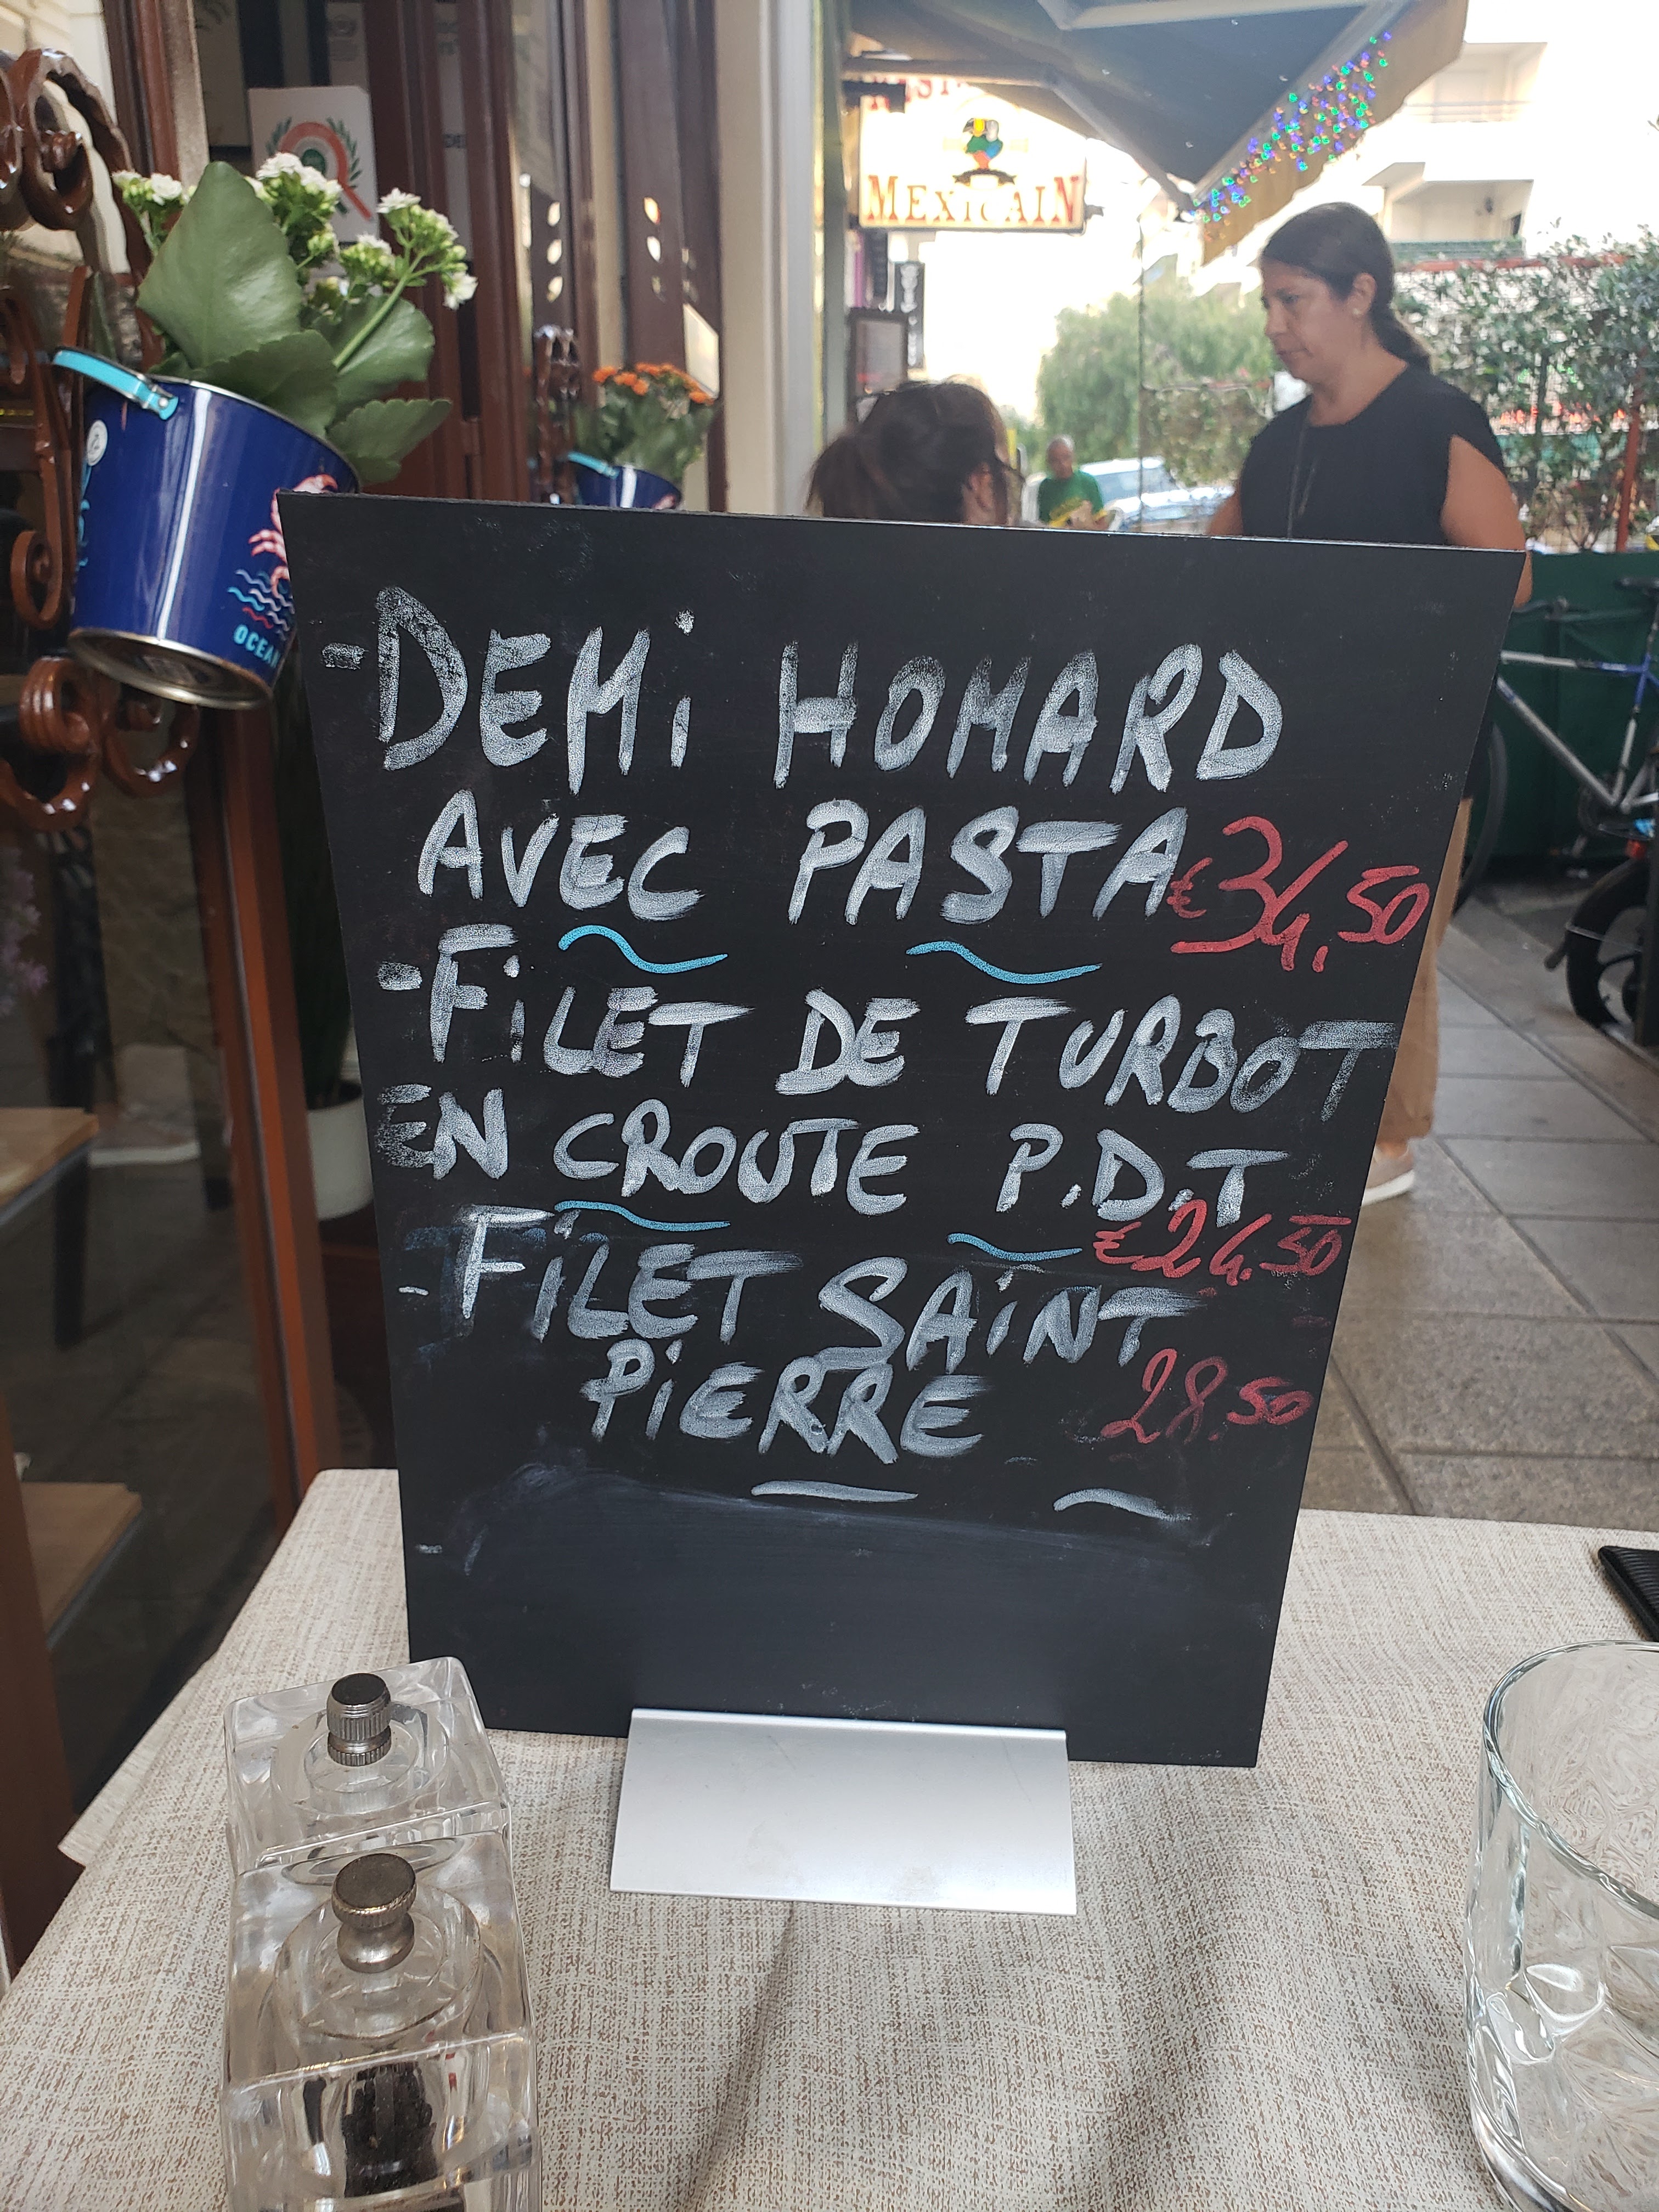 MEXICAIN
OCEAN
-DEMi HOMARD
AVEC PASTA €34,50
-FiLET DE TURBOT
EN CROUTE P.D.T
€24.50
-FiLET SAiNT
PiERRE 28.50